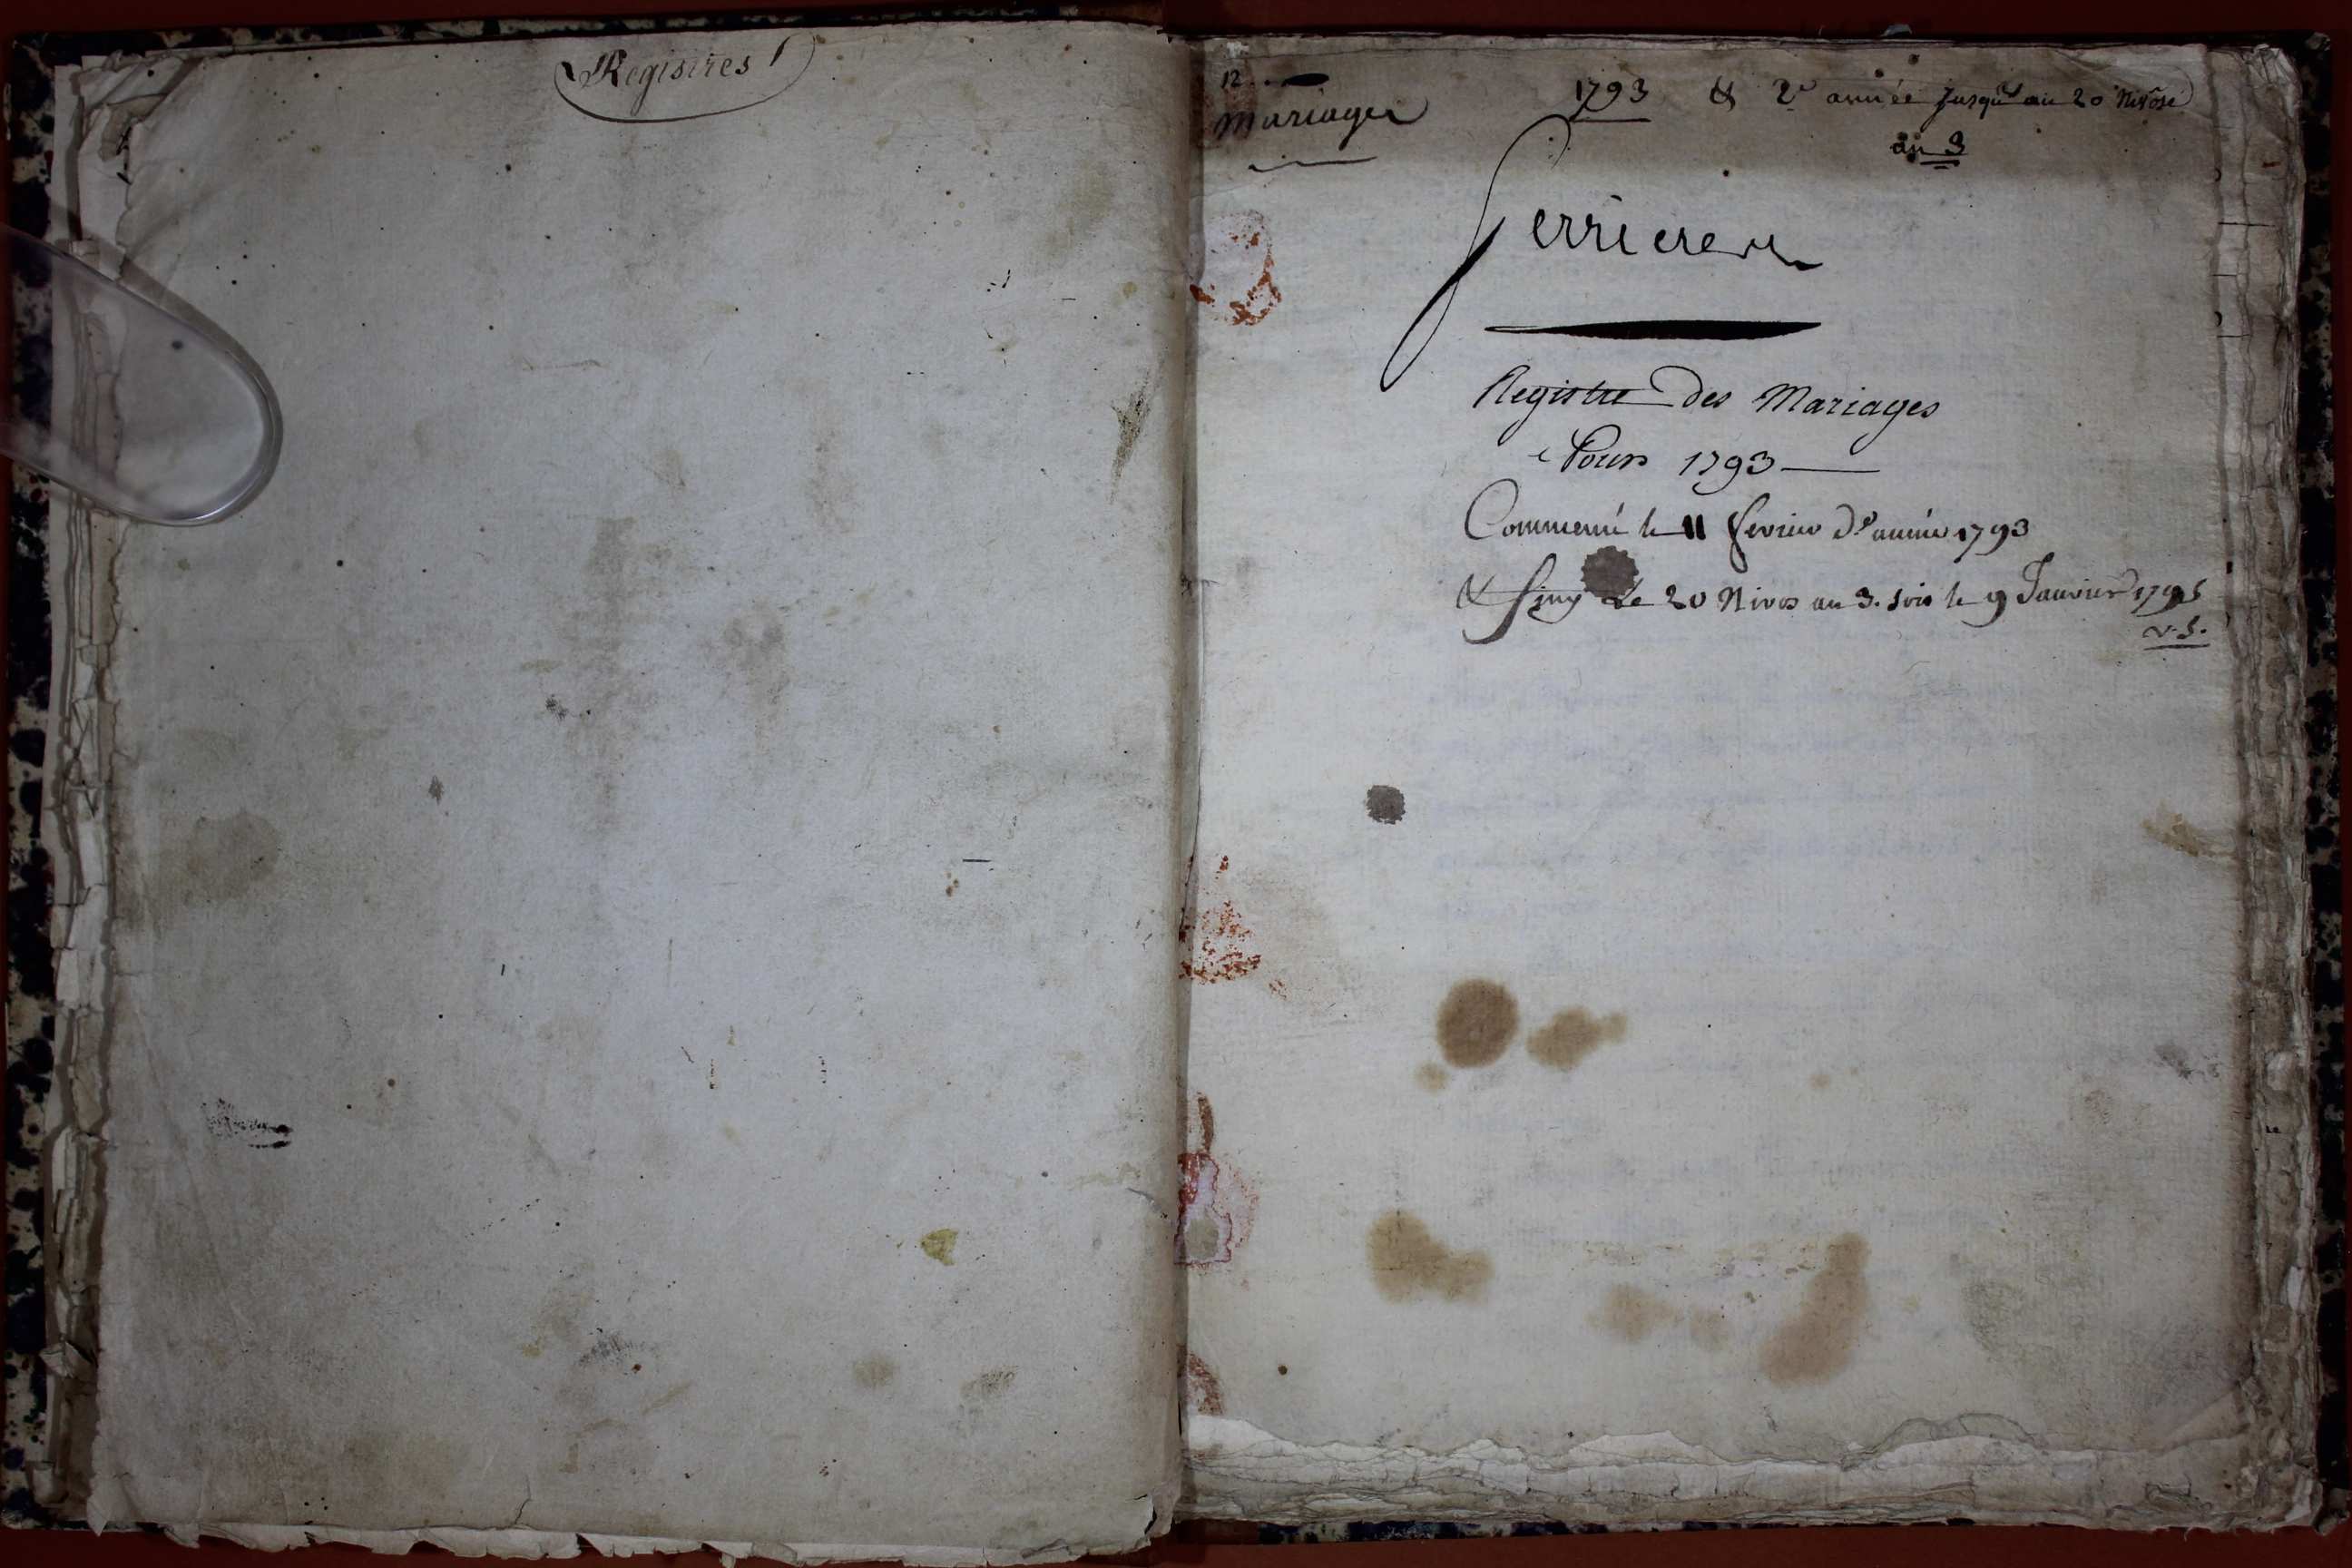 Registres
12
Mariages
1793 & 2e année jusqu'au 20 Nivôse
an 3
Ferrieres
Registre des Mariages
Pour 1793
Commencé le 11 fevrier de année 1793
& finy Le 20 Nivos an 3. soit le 9 Janvier 1795
v. s.